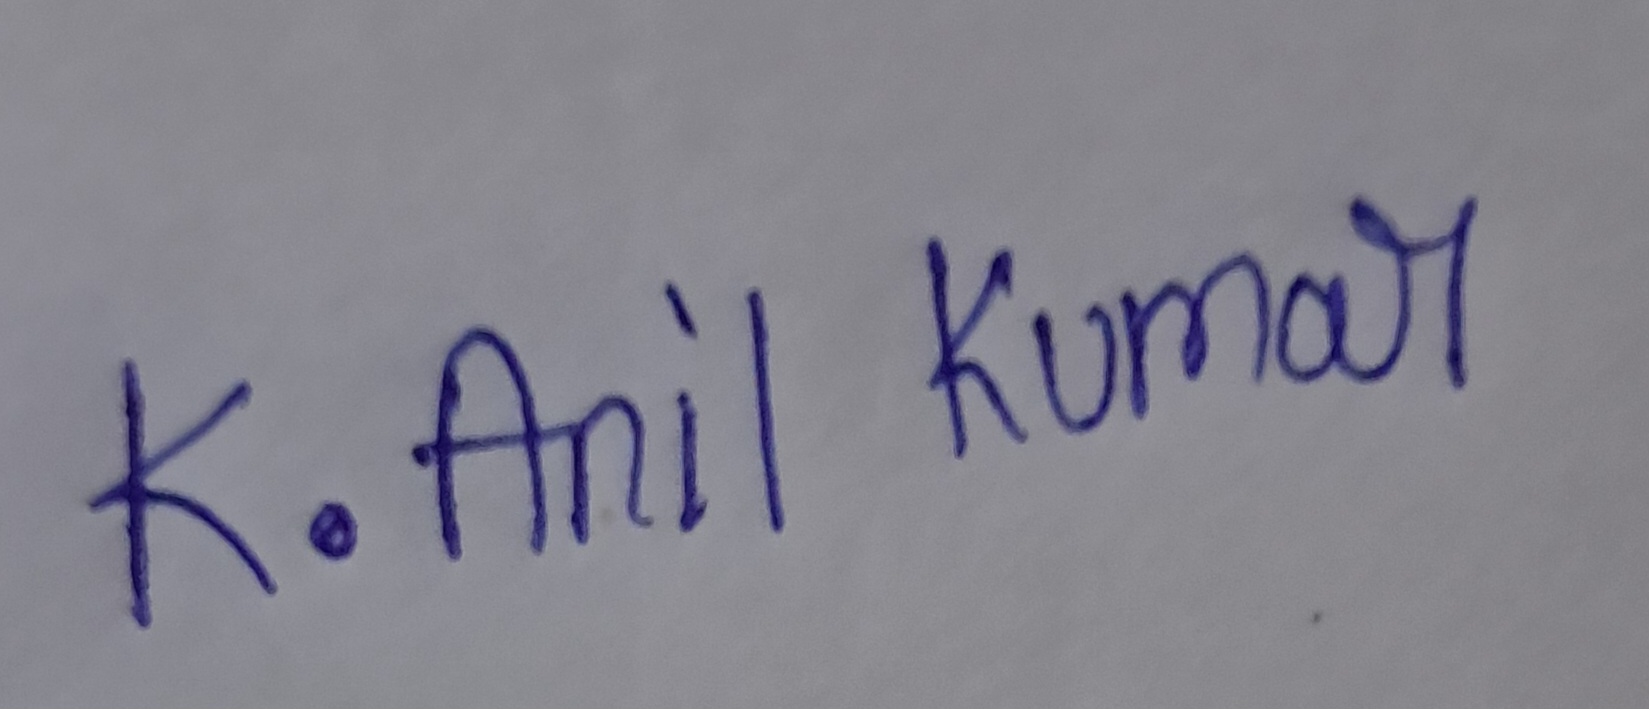 K. Anil Kumar